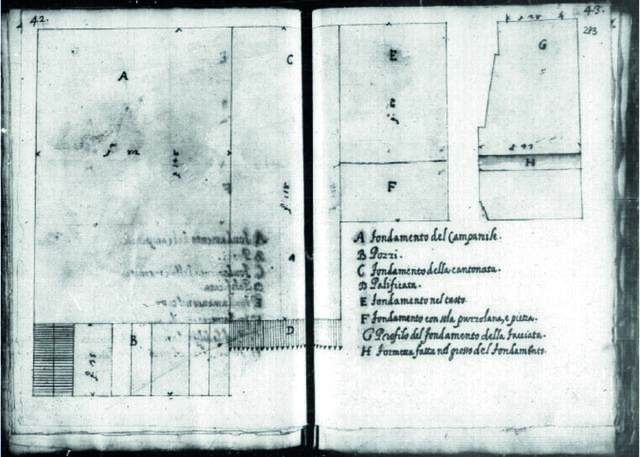 42.
A
C
B
D
43.
E
G
F
H
A fondamento del Campanile.
B Pozzi.
C fondamento della cantonata.
D Palificata.
E fondamento nel tasto
F fondamento con sola puzzolana, e pietra.
G Profilo del fondamento della facciata.
H formezza fatta nel grosso del fondamento.